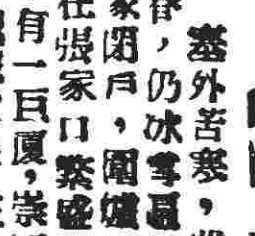 塞外苦寒，
春，仍冰雪
家閉戶，圍爐
在張家口繁盛
有一巨廈，崇